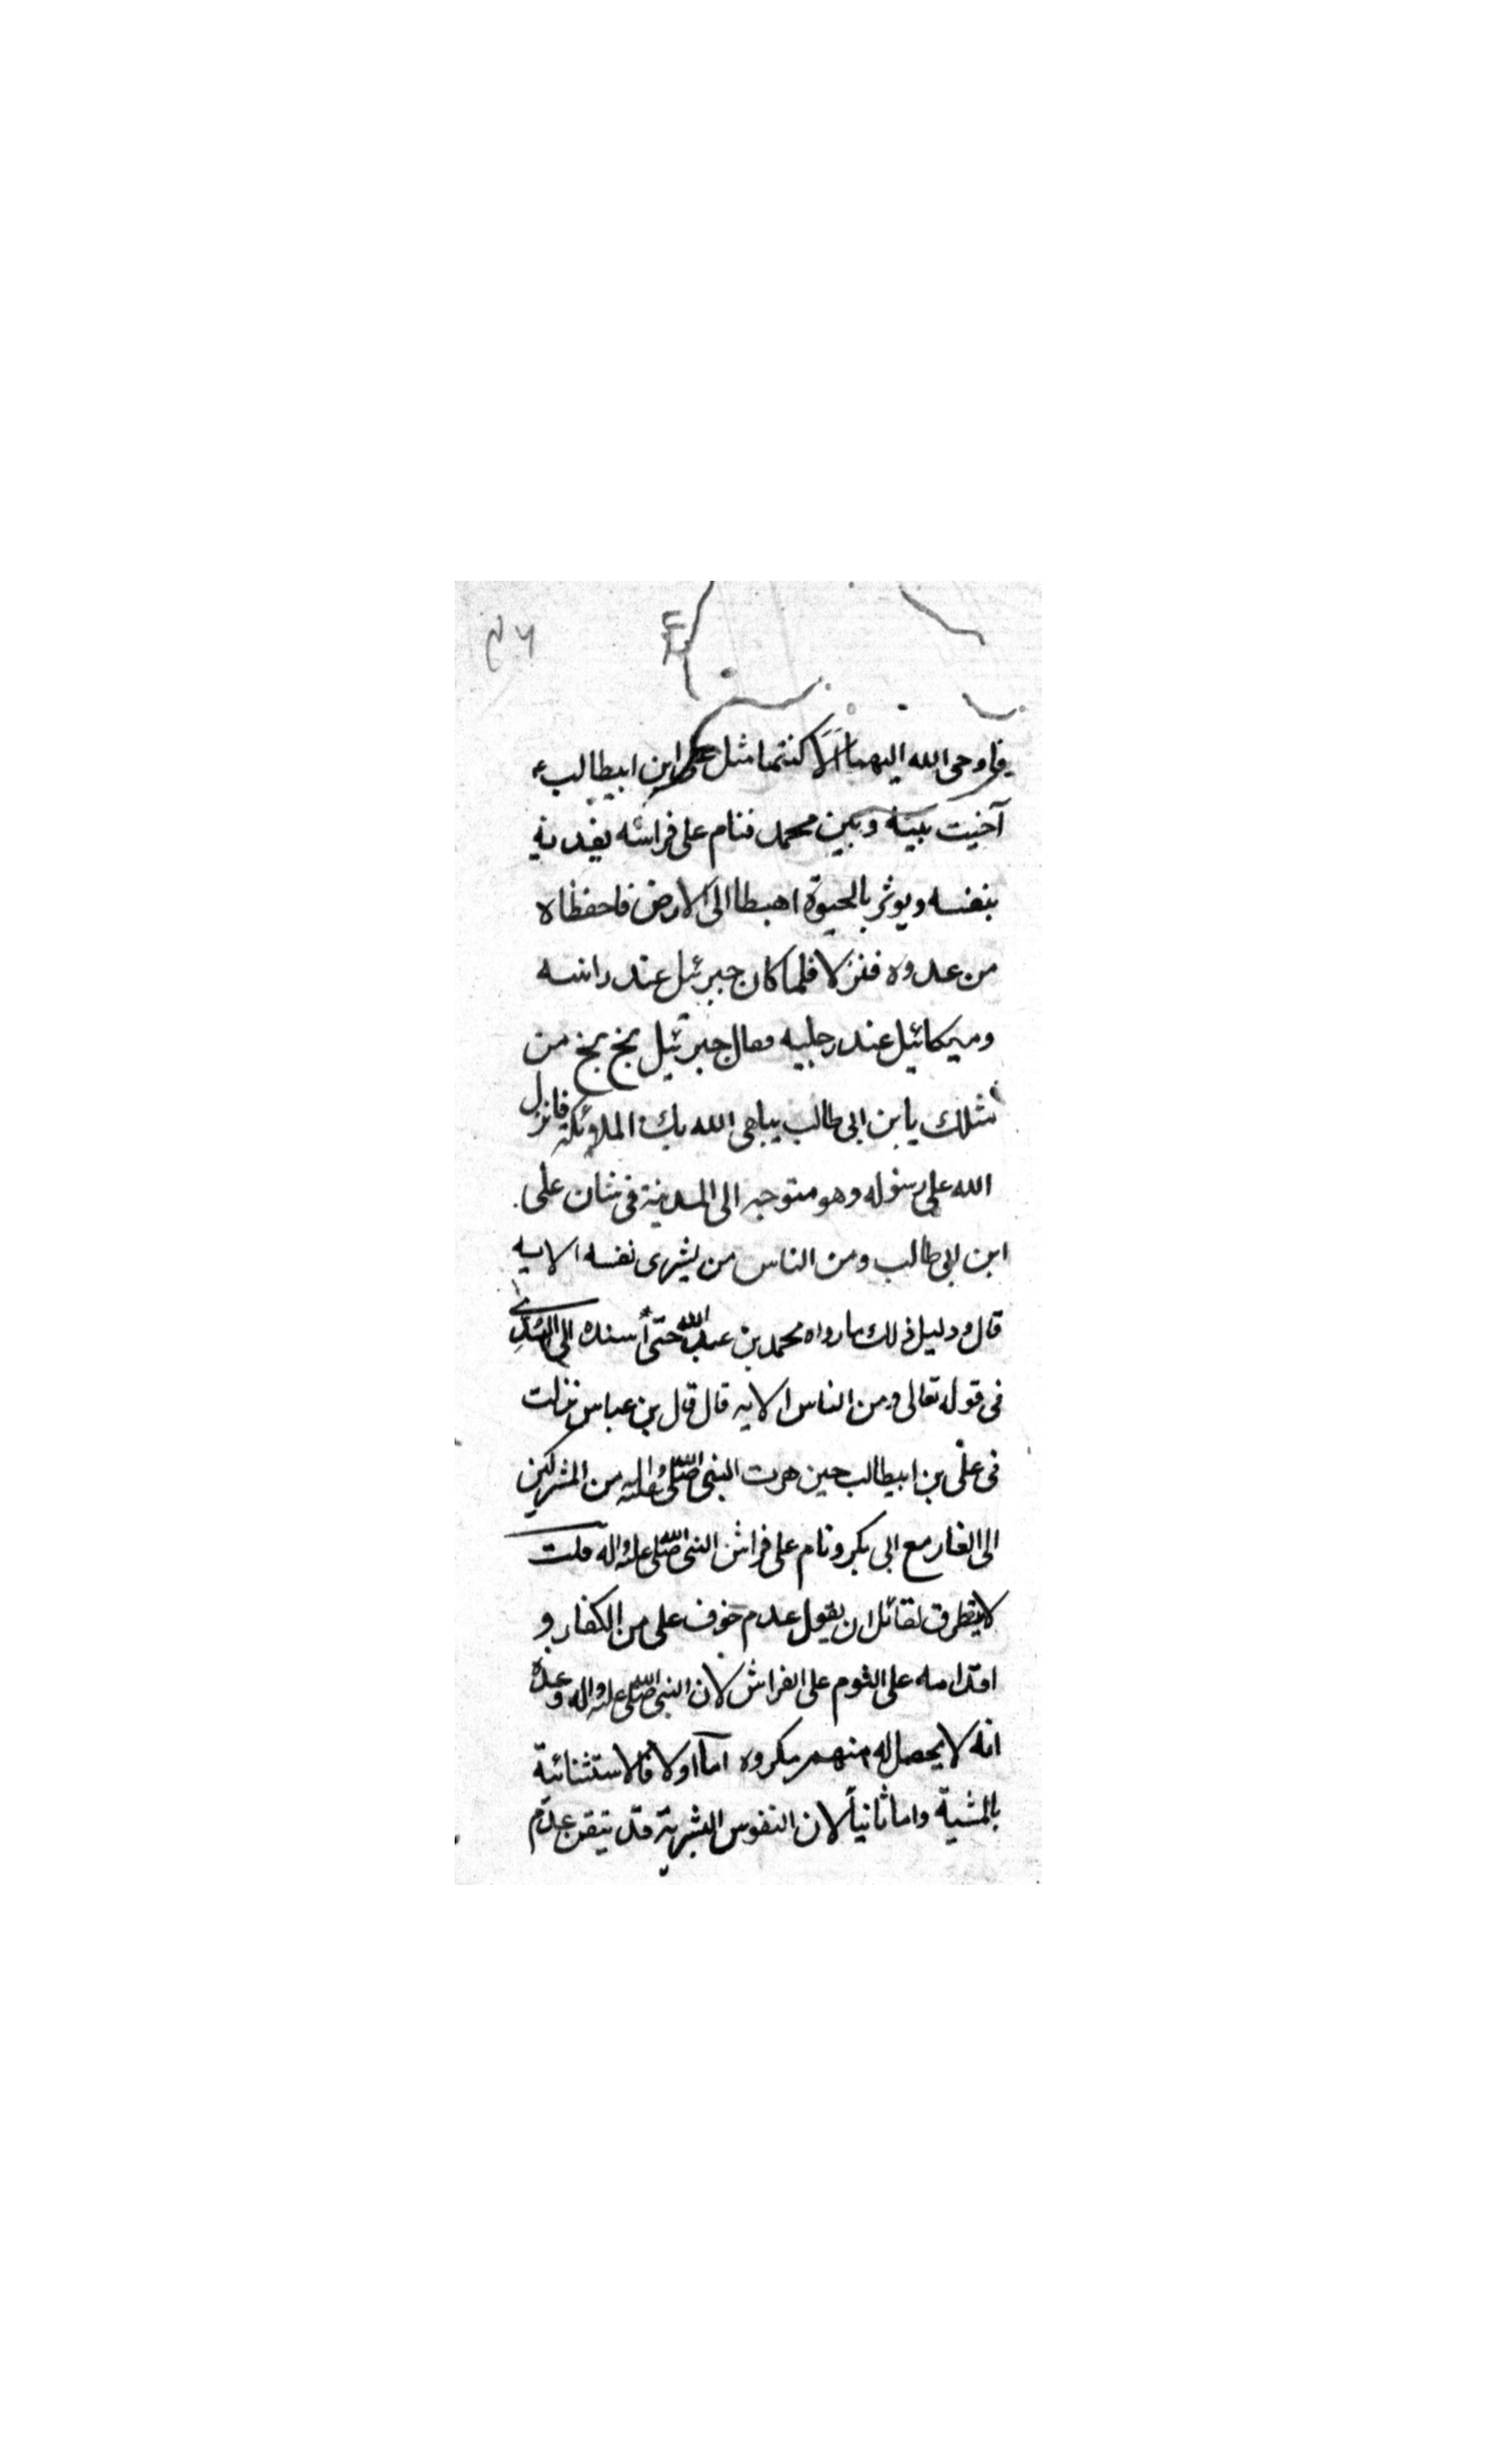 فاوحى الله اليهما الا كنتما مثل على ابن ابيطالب ع
آخيت بينه وبين محمد فنام على فراشه يفديه
بنفسه ويوثر بالحيوة اهبطا الى الارض فاحفظاه
من عدوه فنزلا فلما كان جبرئيل عند راسه
وميكائيل عند رجليه فقال جبرئيل بخ بخ من
مثلك يابن ابى طالب يباهى الله بك الملائكة فانزل
الله على رسوله وهو متوجه الى المدينة فى شان على
ابن ابى طالب ومن الناس من يشرى نفسه الايه
قال ودليل ذلك ما رواه محمد بن عبد الله حتى أسنده الى السّدِى
فى قوله تعالى ومن الناس الايه قال قال بن عباس نزلت
فى على بن ابيطالب حين هرب النبى صلى الله عليه واله من المشركين
الى الغار مع ابى بكر ونام على فراش النبى صلى الله عليه واله قلت
لا يتطرق لقائل ان يقول عدم خوف على من الكفار و
اقدامه على النوم على الفراش لان النبى صلى الله عليه واله وعده
انه لا يحصل له منهم مكروه امآ اولا فالاستثنائية
بالمشية واما ثانياً لان النفوس البشرية قد تيقن عدم